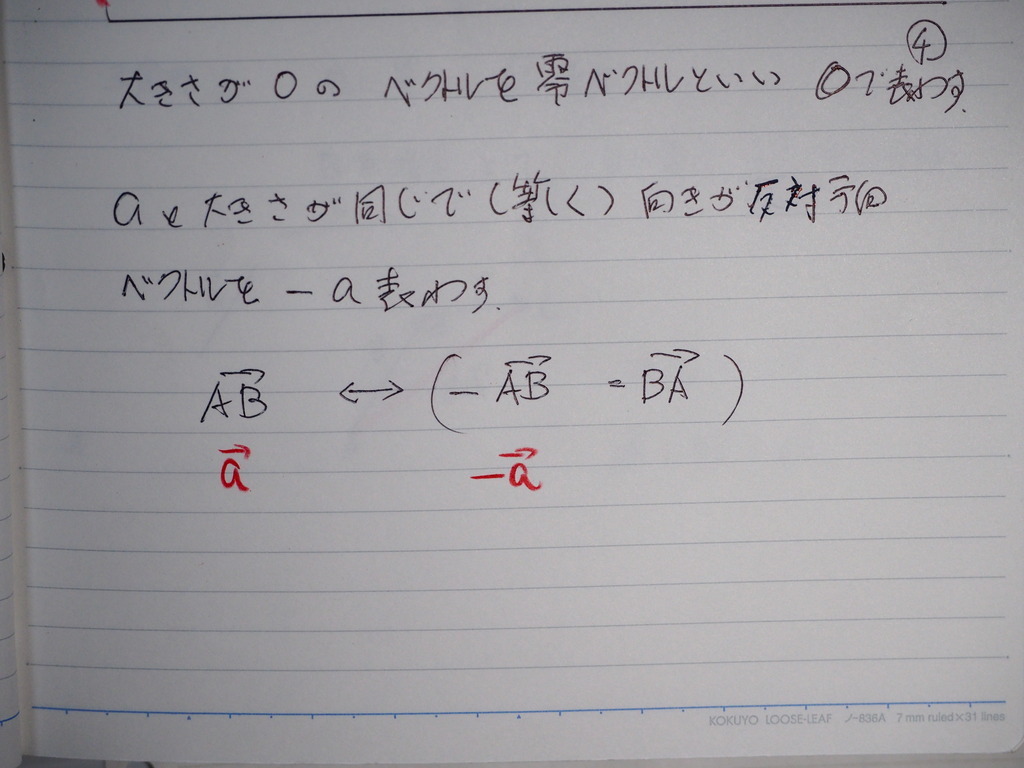 ④
大きさが0の ベクトルを零ベクトルといい 0で表わす.
aと大きさが同じで(等しく)向きが反対方向
ベクトルを -a 表わす.
$\overrightarrow{AB}$ ↔ (-$\overrightarrow{AB}$ = $\overrightarrow{BA}$)
$\vec{a}$ -$\vec{a}$
KOKUYO LOOSE-LEAF ノ-836A 7 mm ruled×31 lines